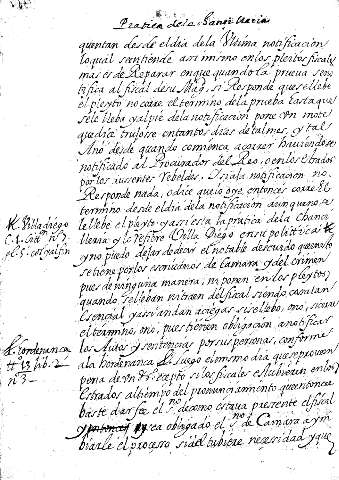 Pratica de la Chanzilleria
quentan desde el dia de la Ultima notificacion
lo qual sentiende asi mismo en los pleitos fiscale
mas es de Reparar en que quando la prueua se no
tifica al fiscal de su Mag. si Responde que se llebe
el pleyto no corre el termino de la prueba hasta que
se le lleba y al pie de la notificacion pone un mote
que dice trujose en tantos dias de tal mes, y tal
Año desde quando comienca a correr hauiendose
notificado al Procurador del Reo, o en los estrados
por los ausentes Rebeldes. Y si a la notificacion no
Responde nada, o dice que lo oye entonces corre el
termino desde el dia de la notificacion aunque no se
le llebe el pleyto. y assi es la pratica de la Chanci
lleria y lo refirio Villa Diego en su politica
y no puedo dejar de decir el notable descuido que en esto
se tiene por los escriuanos de Camara y del crimen
pues de ninguna manera, ni ponen en los pleytos,
quando se lleban ni traen del fiscal siendo cosa tan
esencial y assi andan a ciegas si se llebo, o no, si corre
el termino, o no, pues tienen obligacion a notificar
los Autos y sentencias por sus personas, conforme
a la hordenanca luego el mismo dia que se prouein
pena de
estrados al tiempo del pronunciamiento que entonces
baste dar fee el s.no de como estaua presente el fiscal
y sea obligado el s.no de Camara a ym
biarle el proceso si del tubiere necesidad y que
Villadiego
C. 1.
hordenanca
lib. 2
n.º 3